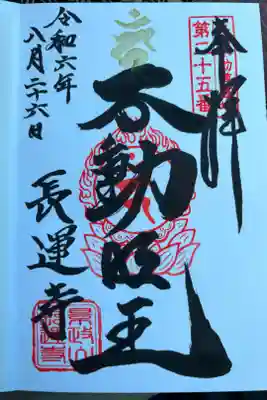 奉拝
第二十五番
不動明王
長運寺
令和六年
八月二十六日